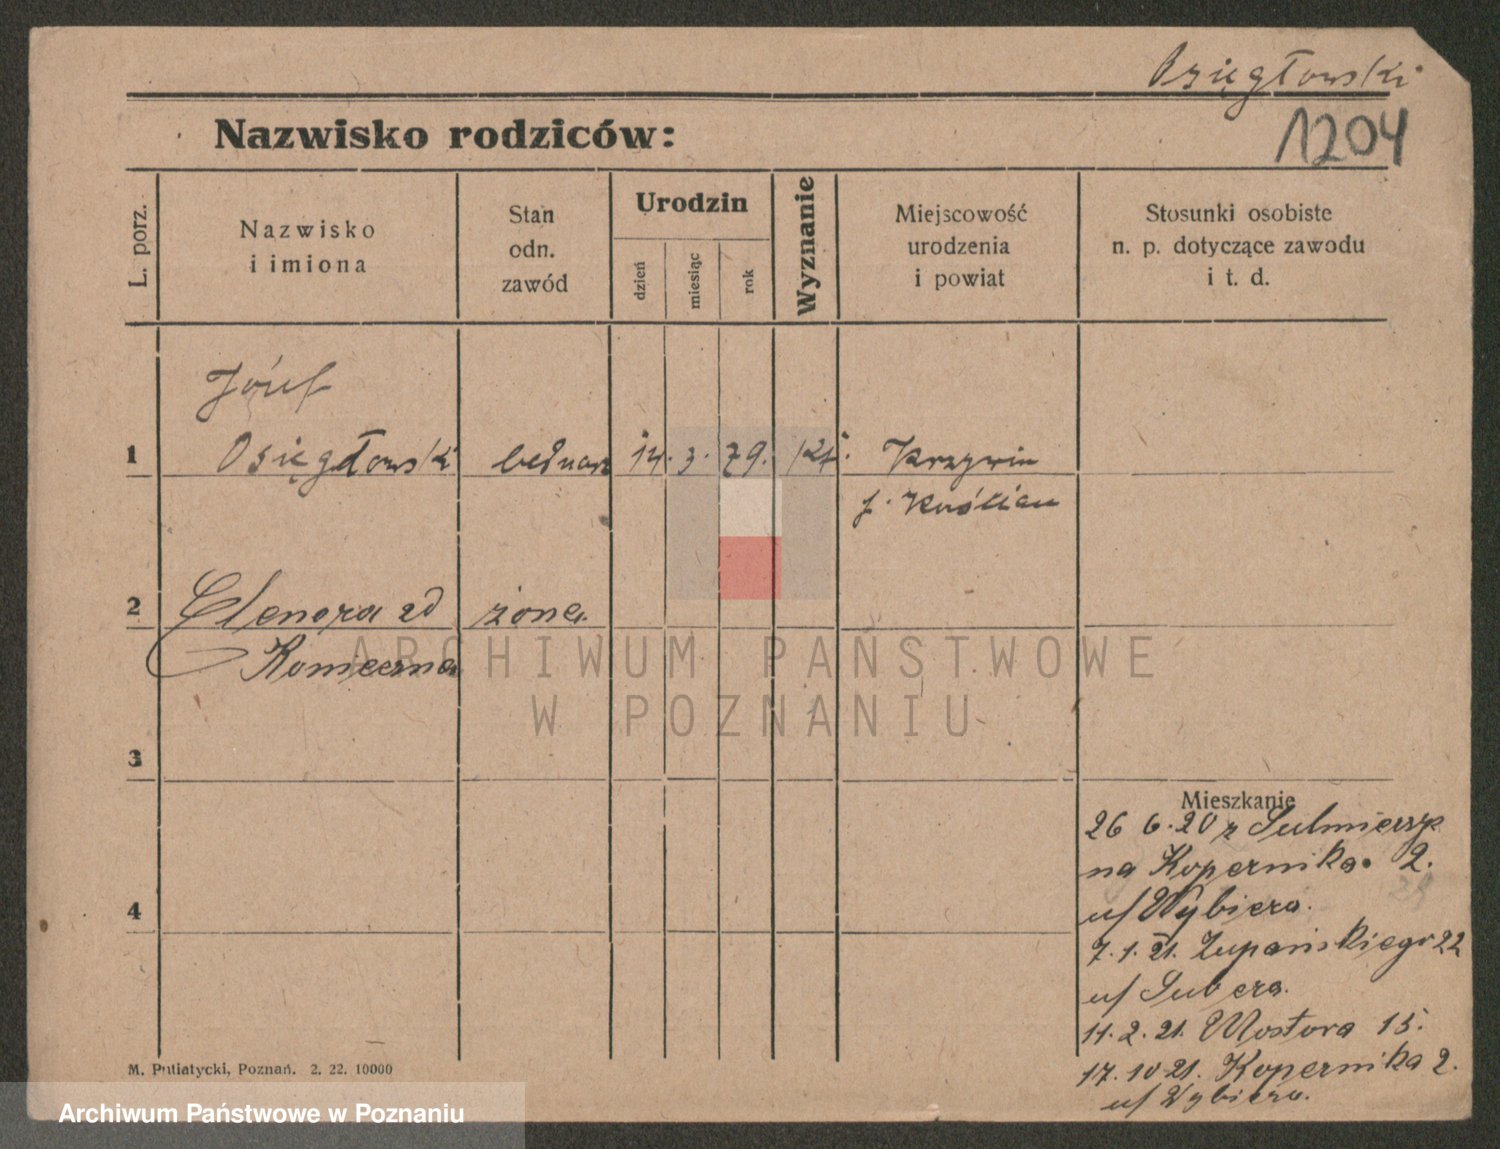 Osięgłowski
1204
Nazwisko rodziców:
L. porz.
Nazwisko
i imiona
Stan
odn.
zawód
Urodzin
dzień
miesiąc
rok
Wyznanie
Miejscowość
urodzenia
i powiat
Stosunki osobiste
n. p. dotyczące zawodu
i t. d.
Józef
1 Osięgłowski bednarz 14. 3. 79. kt. Krzywin
2 Elenora zd żona
Konieczna
ARCHIWUM PAŃSTWOWE
W POZNANIU
3
Mieszkanie
26 6. 20 z Sulmierzyc
na Kopernika 2.
4
u/ Wybiera.
7. 1. 21. Żupańskiego 22
u/ Subera.
11. 2. 21. Mostowa 15.
17. 10 21. Kopernika 2.
u/ Wybiera.
M. Putiatycki, Poznań. 2. 22. 10000
Archiwum Państwowe w Poznaniu